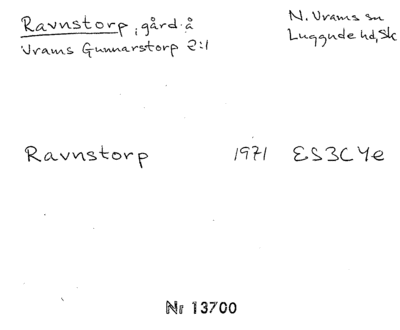 Ravnstorp, gård å
Vrams Gunnarstorp 2:1
N. Vrams sn
Luggude hd, Sk
Ravnstorp 1971 ES3C4e
Nr 13700